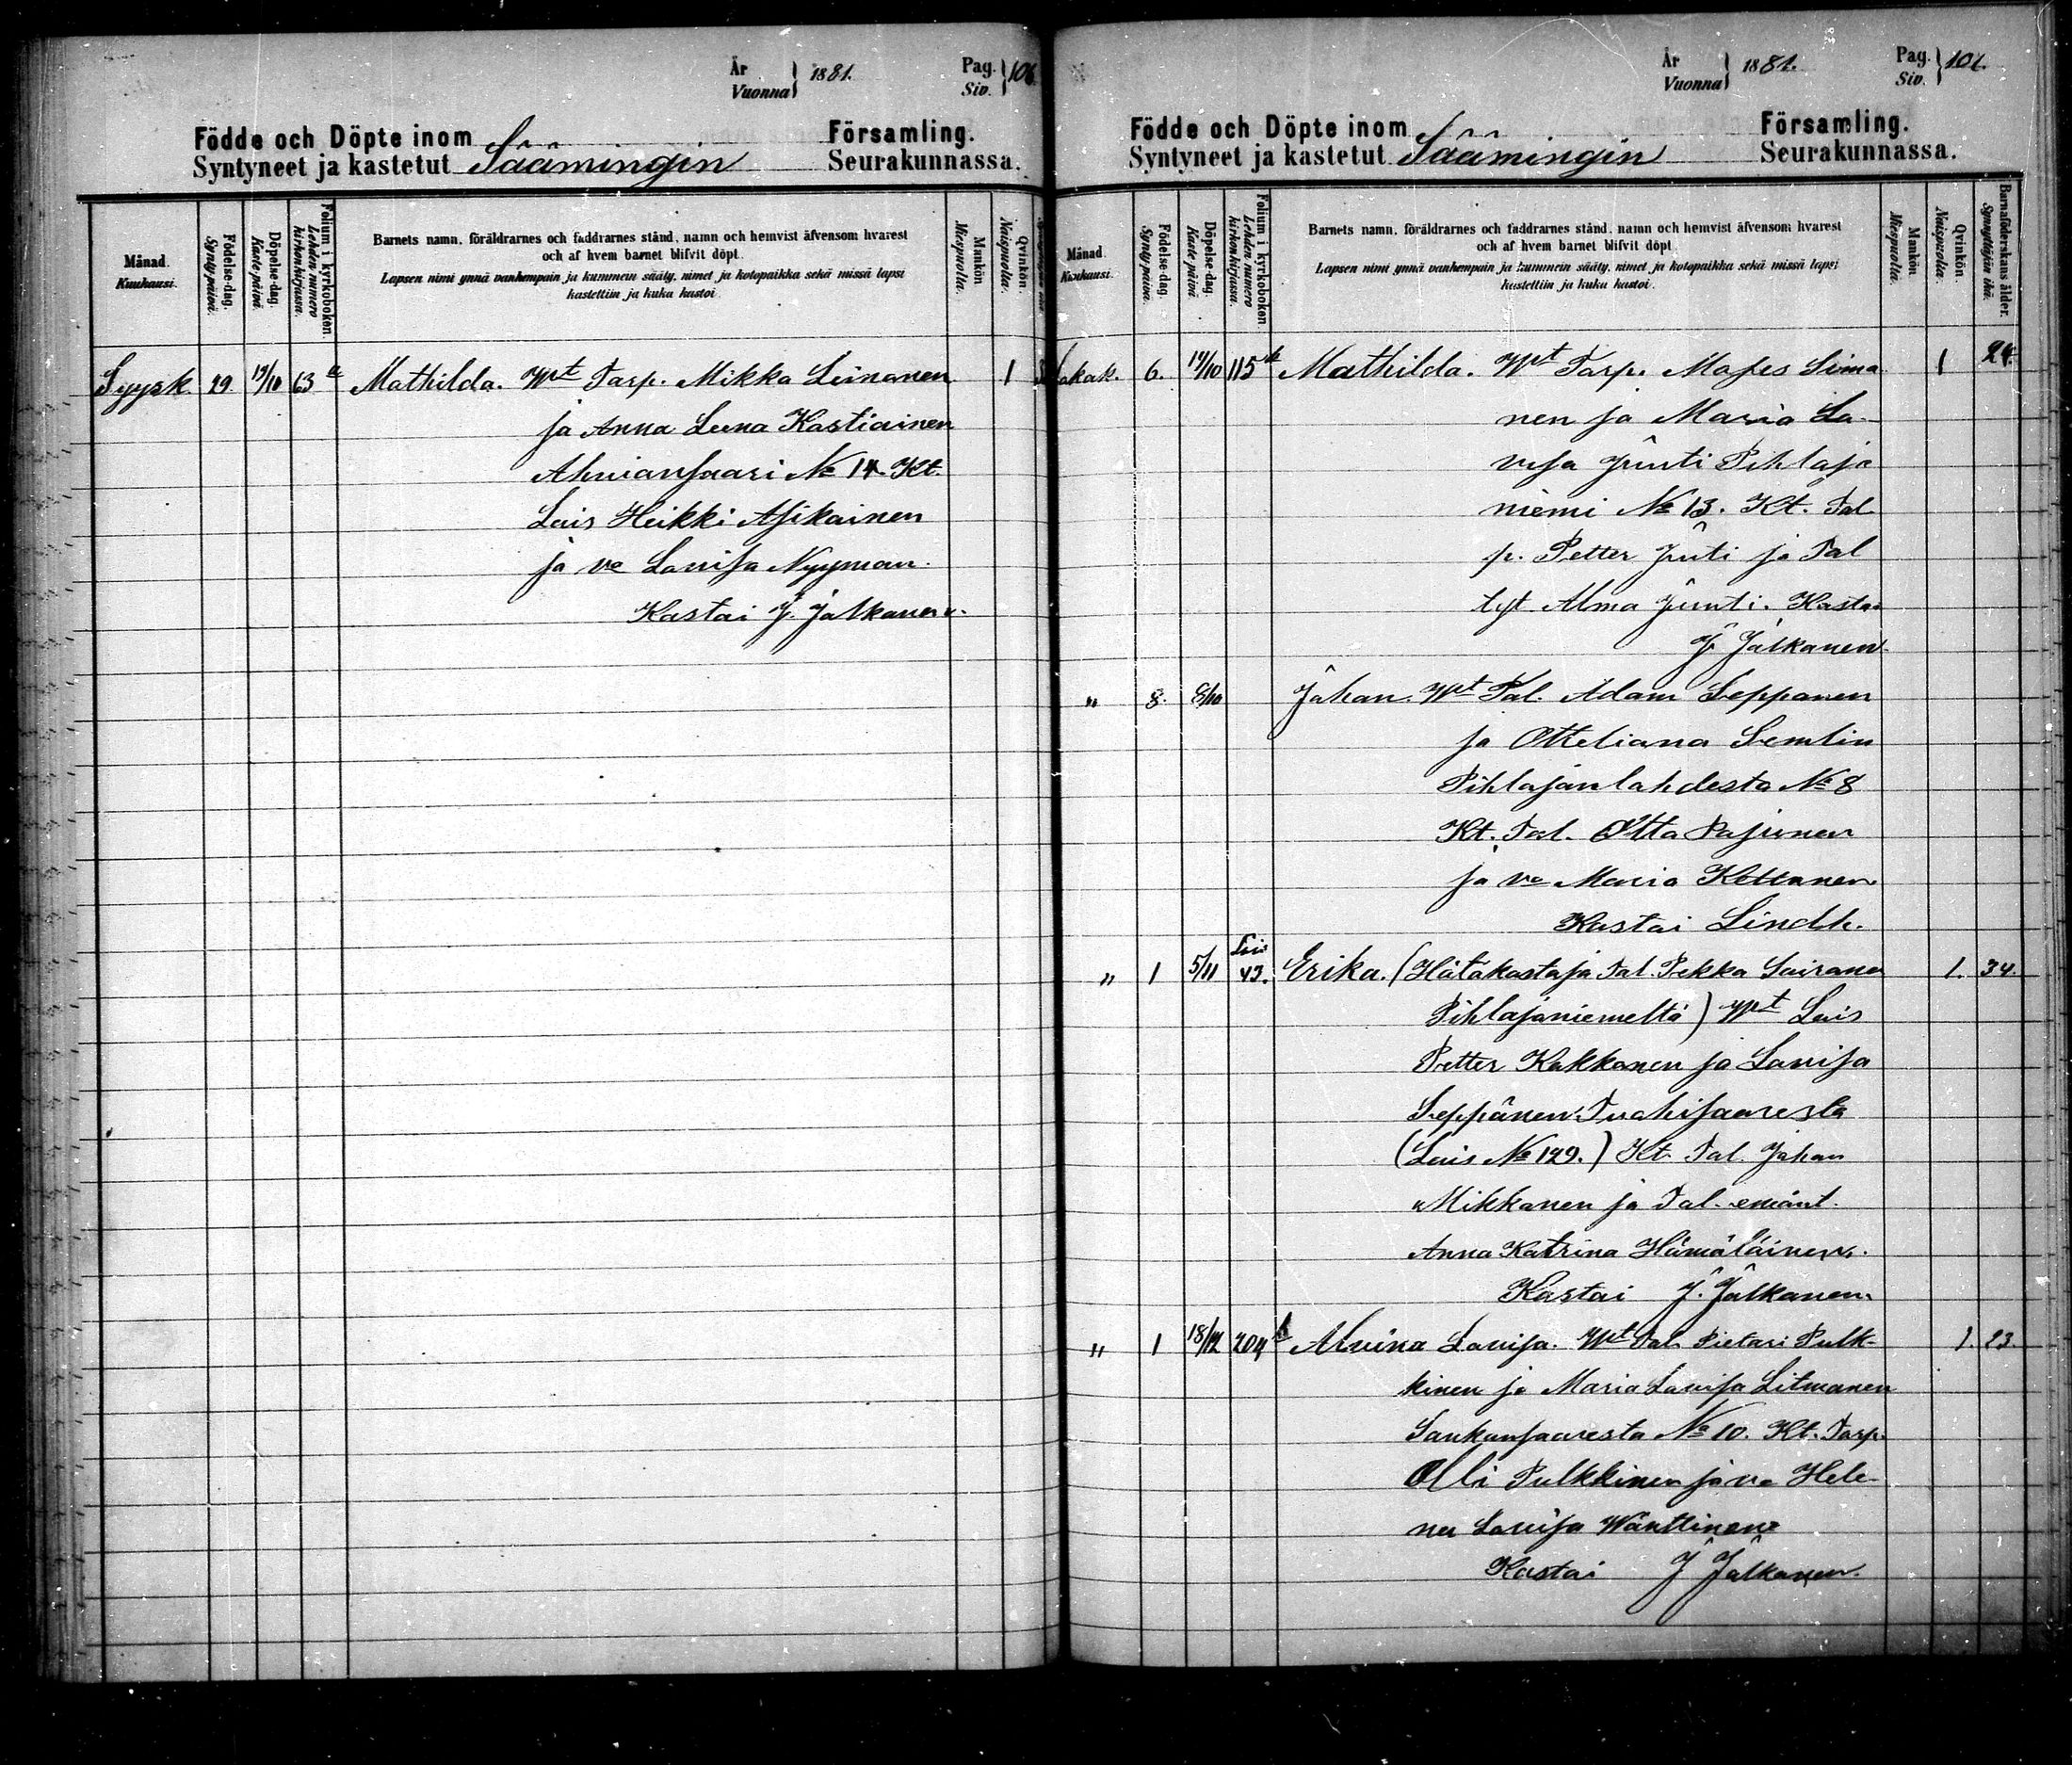 År
Vuonna } 1881.
Pag.
Siv. } 106
Födde och Döpte inom Församling.
Syntyneet ja kastetut Säämingin Seurakunnassa.
Månad. Kuukausi.
Födelse-dag. Synty päivä.
Döpelse-dag. Kaste päivä.
Folium i kyrkoboken. Lehden numero kirkonkirjassa.
Barnets namn, föräldrarnes och faddrarnes stånd, namn och hemvist äfvensom hvarest
och af hvem barnet blifvit döpt.
Lapsen nimi ynnä vanhempain ja kummein sääty, nimet ja kotopaikka sekä missä lapsi
kastettiin ja kuka kastoi.
Mankön Miespuolta.
Qvinkön. Naispuolta.
Syysk. 29. 19/10 63 a Mathilda. Wmt Tarp. Mikka Leinonen 1
ja Anna Leena Kastiainen
Ahvionsaari No 14. Kt.
Lais Heikki Asikainen
ja va Lovisa Nyyman.
Kastoi J. Jalkanen.
År
Vuonna } 1881.
Pag.
Siv. } 101.
Födde och Döpte inom Församling.
Syntyneet ja kastetut Säämingin Seurakunnassa.
Månad. Kuukausi.
Födelse-dag. Synty päivä.
Döpelse-dag. Kaste päivä.
Folium i kyrkoboken. Lehden numero kirkonkirjassa.
Barnets namn, föräldrarnes och faddrarnes stånd, namn och hemvist äfvensom hvarest
och af hvem barnet blifvit döpt.
Lapsen nimi ynnä vanhempain ja kummein sääty, nimet ja kotopaikka sekä missä lapsi
kastettiin ja kuka kastoi.
Mankön Miespuolta.
Qvinkön. Naispuolta.
Barnaföderskans ålder. Synnyttäjän ikä.
Lokak. 6. 19/10 115 Mathilda. Wmt Tarp. Moses Sima 1 24.
nen ja Maria Lo-
visa Jünti Pihlaja
niemi No 13. Kt. Tal
p. Petter Jünti ja Tal
tyt Alma Jünti. Kastoi
J. Jalkanen.
" 8. 8/10 Johan. Wmt Tal. Adam Seppanen
ja Otteliana Semlin
Pihlajanlahdesta No 8
Kt. Tal. Otto Pajunen
ja va Maria Kettunen.
Kastoi Lindh.
Lais
" 1 5/11 43. Erika. (Hätäkastaja Tal. Pekka Sairane 1. 34.
Pihlajaniemeltä) Wmt Lais
Petter Kakkonen ja Lovisa
Seppänen Tuohisaaresta
(Lais No 129.) Kt. Tal. Johan
Mikkonen ja Tal. emänt.
Anna Katrina Hämäläinen.
Kastoi J. Jalkanen.
" 1 18/12 204 b Alviina Lovisa. Wmt Tal. Pietari Pulk- 1. 23.
kinen ja Maria Lovisa Litmanen
Saukonsaaresta No 10. Kt. Tarp.
Olli Pulkkinen ja va Hele-
na Lovisa Wänttinen
Kastoi J Jalkanen.